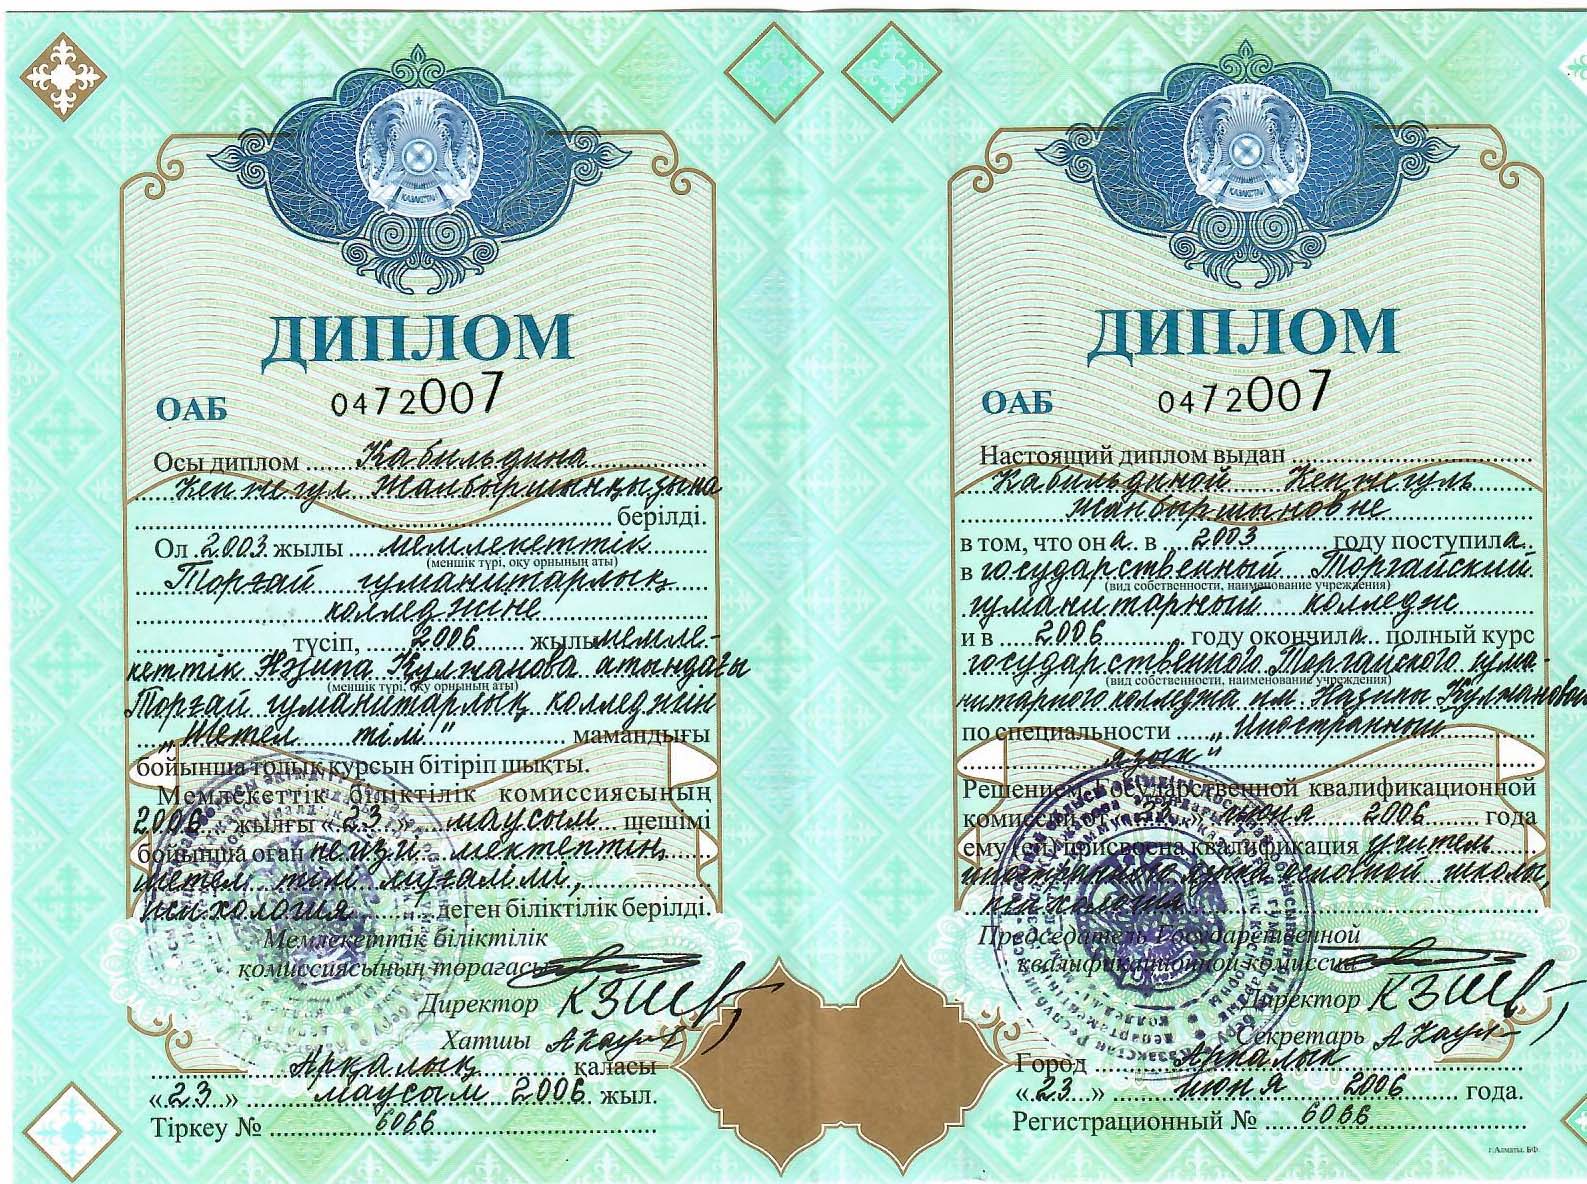 ҚАЗАҚСТАН
ДИПЛОМ
ОАБ 0472007
Осы диплом Кабильдина
Кенжегул Жанбыршынқызына
берілді.
Ол 2003 жылы мемлекеттік
(меншік түрі, оқу орнының аты)
Торғай гуманитарлық
колледжіне
түсіп, 2006 жылы мемле-
кеттік Нәзипа Құлжанова атындағы
(меншік түрі, оқу орнының аты)
Торғай гуманитарлық колледжін
„Шетел тілі" мамандығы
бойынша толық курсын бітіріп шықты.
Мемлекеттік біліктілік комиссиясының
2006 жылғы «23» маусым шешімі
бойынша оған негізгі мектептің
шетел тілі мұғалімі,
психология деген біліктілік берілді.
Мемлекеттік біліктілік
комиссиясының төрағасы
Директор
Хатшы
Арқалық қаласы
«23» маусым 2006 жыл.
Тіркеу № 6066
ҚАЗАҚСТАН
ДИПЛОМ
ОАБ 0472007
Настоящий диплом выдан
Кабильдиной Кенжегуль
Жанбыршыновне
в том, что она в 2003 году поступила
в государственный Торгайский
(вид собственности, наименование учреждения)
гуманитарный колледж
и в 2006 году окончила полный курс
государственного Торгайского гума-
(вид собственности, наименование учреждения)
нитарного колледжа им. Назипы Кулжановой
по специальности „Иностранный
язык"
Решением Государственной квалификационной
комиссии от «23» июня 2006 года
ему (ей) присвоена квалификация учитель
иностранного языка основной школы,
психология
Председатель Государственной
квалификационной комиссии
Директор
Секретарь
Город Аркалык
«23» июня 2006 года.
Регистрационный № 6066
г.Алматы. БФ.